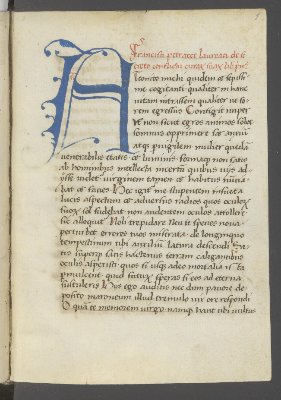 Francisci petrarce laureati de se
creto conflictu curarum suarum lib. prī.
Attonito michi quidem et sepissi
me cogitanti qualiter in hanc
vitam intrassem qualiter ve fo
rem egressurus Contigit nuper
ut non sicut egros animos solet
somnus opprimeret sed anxium
atque pervigilem mulier quedam
enarrabilis etatis et luminis formaque non satis
ab hominibus intellecta incertum quibus viis adi
isse videretur virginem tamen et habitus nuntia
bat et facies Hec igitur me stupentem insueti lu
minis aspectum et adversus radios quos oculorum
suorum sol fundebat non audentem oculos attolle
re sic alloquitur Noli trepidare neu te species nova
perturbet errores tuos miserata de longinquo
tempestivum tibi auxilium latura descendi Sa
tis superque satis hactenus terram caligantibus
oculis aspexisti quos si usque adeo mortalia ista
permulcent quid futurum speras si eos ad eterna
sustuleris His ego auditis nec dum pavore de
posito maroneum illud tremulo vix ore respondi
O quam te memorem virgo namque haut tibi vultus